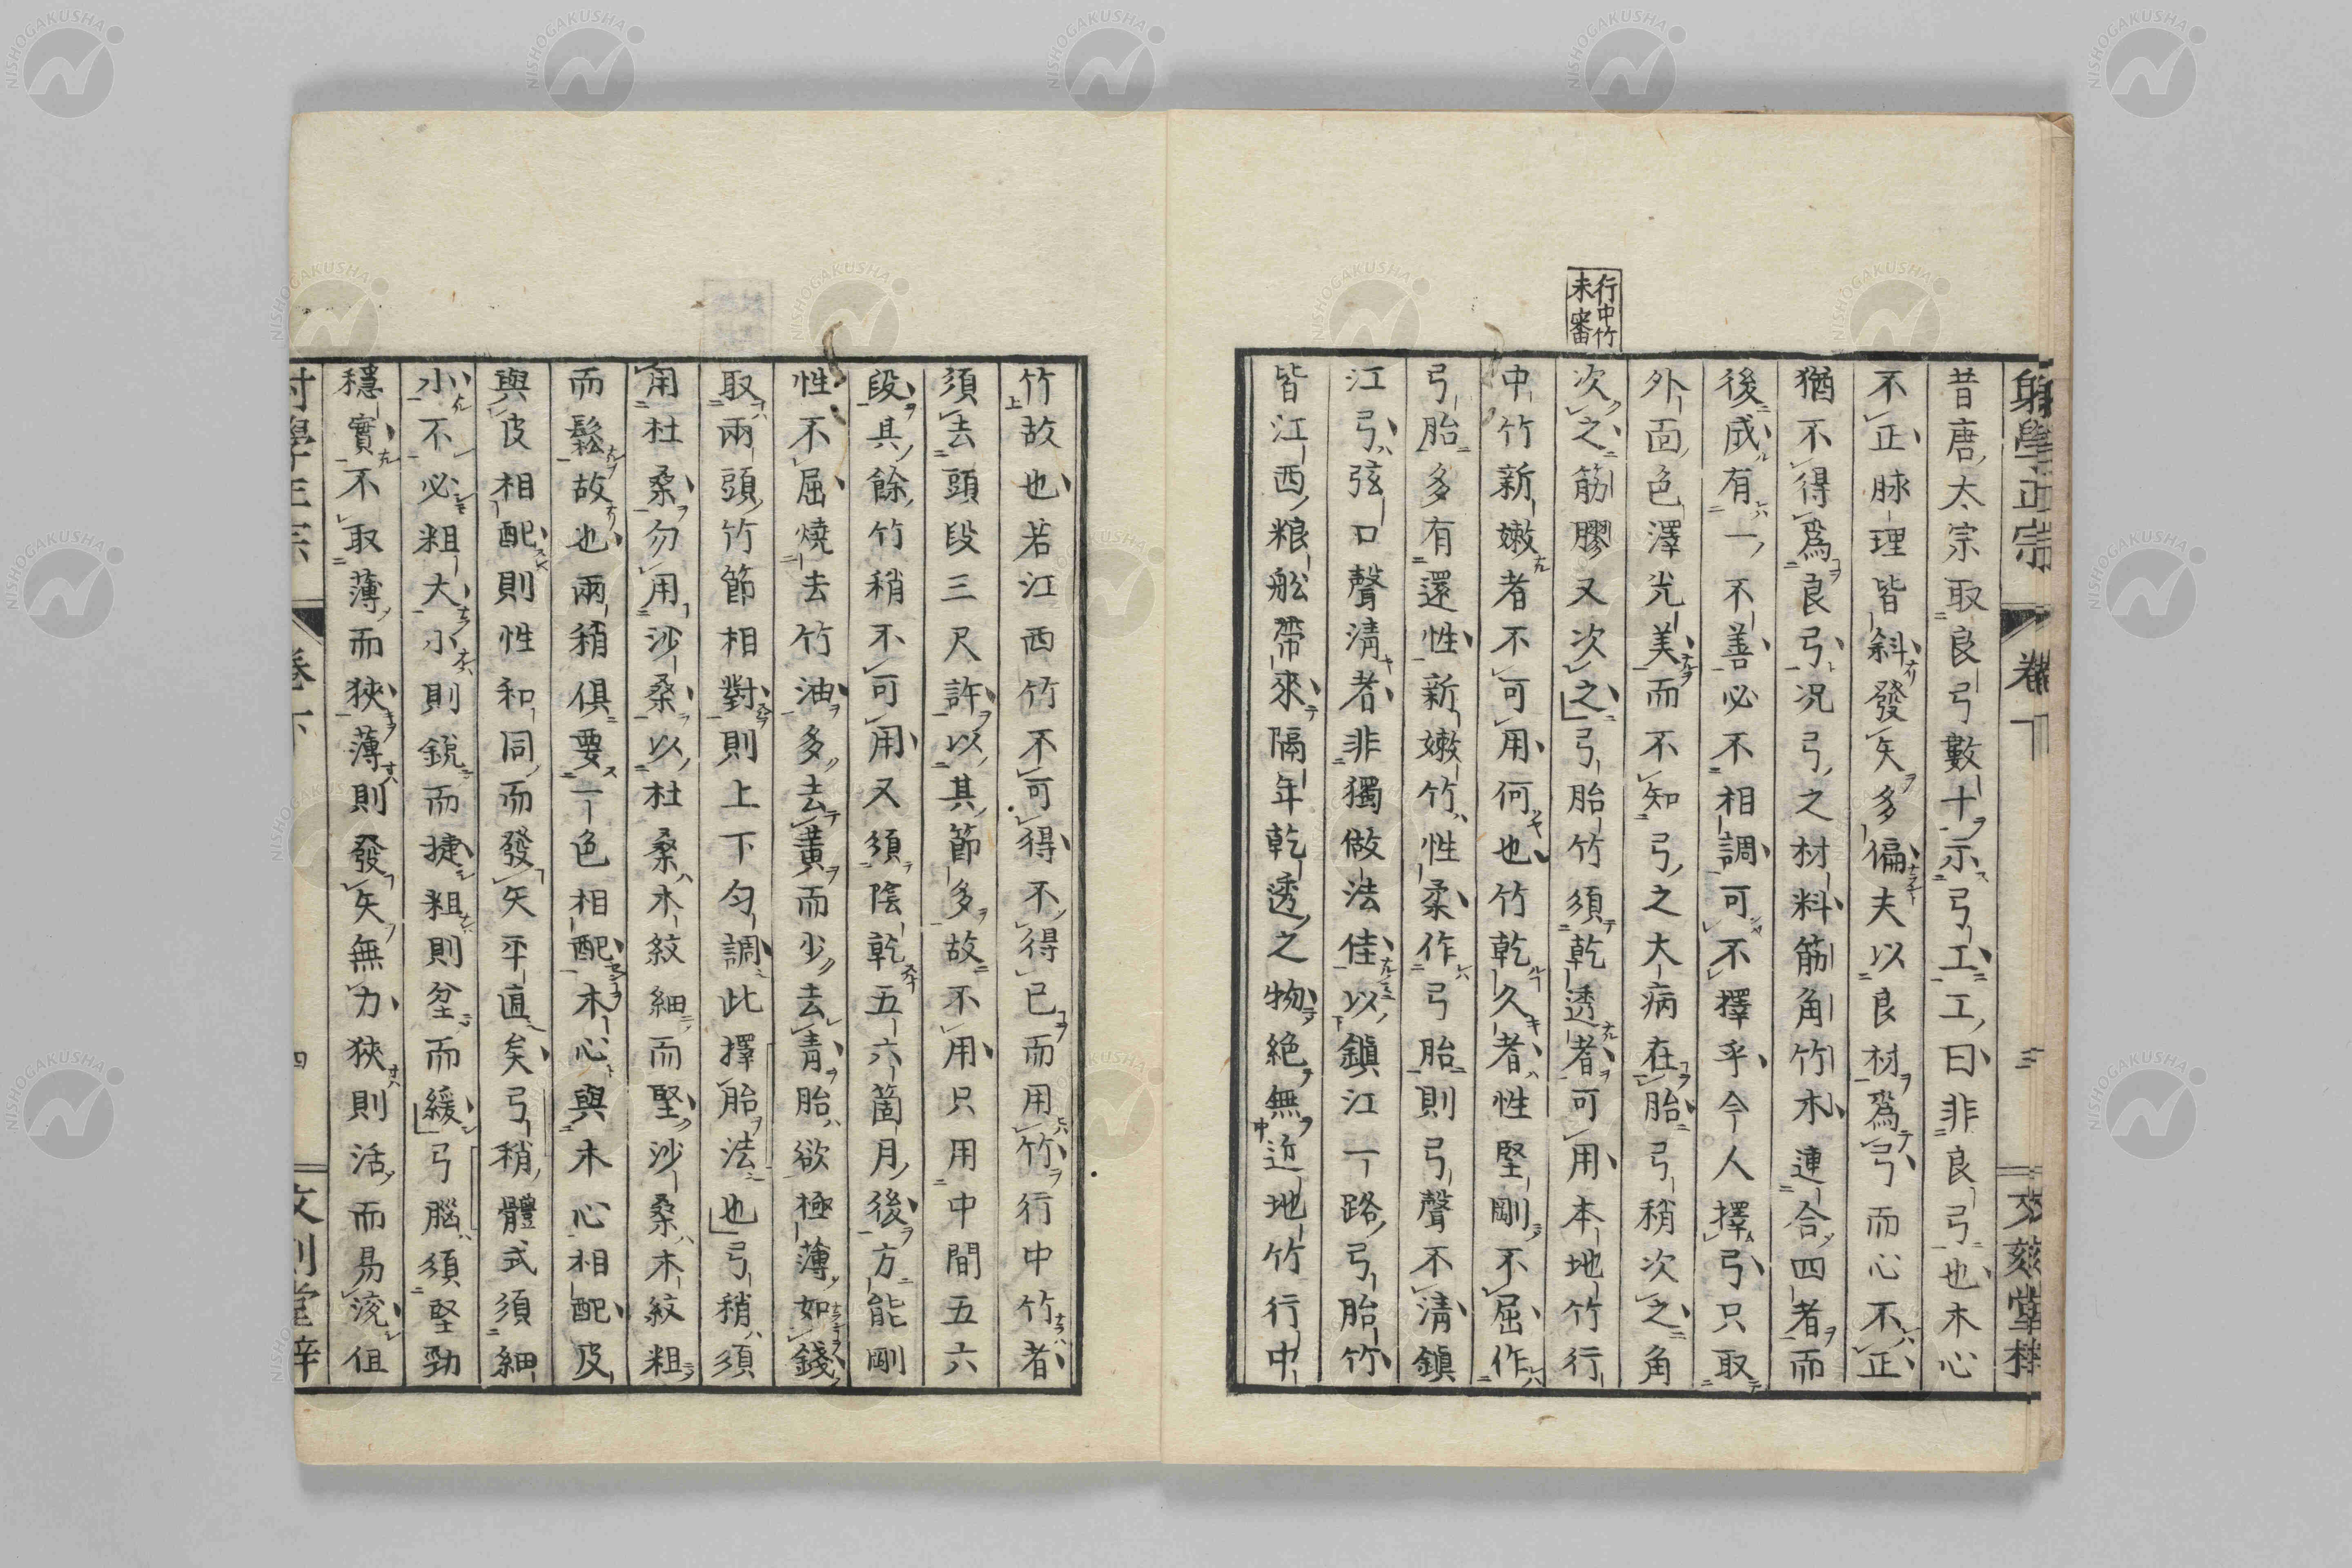 射學正宗 卷下 三
昔唐太宗取良弓數十示弓工工曰非良弓也木心
不正脉理皆斜發矢多偏夫以良材爲弓而心不正
猶不得爲良弓况弓之材料筋角竹木連合四者而
後成有一不善必不相調可不擇乎今人擇弓只取
外面色澤光美而不知弓之大病在胎弓稍次之角
次之筋膠又次之弓胎竹須乾透者可用本地竹行
中竹新嫩者不可用何也竹乾久者性堅剛不屈作
弓胎多有還性新嫩竹性柔作弓胎則弓聲不清鎮
江弓弦口聲清者非獨做法佳以鎮江一路弓胎竹
皆江西粮舩帶來隔年乾透之物絶無近地竹行中
行中竹
未審
竹故也若江西竹不可得不得已而用竹行中竹者
須去頭段三尺許以其節多故不用只用中間五六
段其餘竹稍不可用又須陰乾五六箇月後方能剛
性不屈燒去竹油多去黃而少去青胎欲極薄如錢
取兩頭竹節相對則上下匀調此擇胎法也弓稍須
用杜桑勿用沙桑以杜桑木紋細而堅沙桑木紋粗
而鬆故也兩稍俱要一色相配木心與木心相配皮
與皮相配則性和同而發矢平直矣弓稍體式須細
小不必粗大小則銳而捷粗則坌而緩弓腦須堅勁
穩實不取薄而狹薄則發矢無力狹則活而易滾但
卷下 四
NISHOGAKUSHA